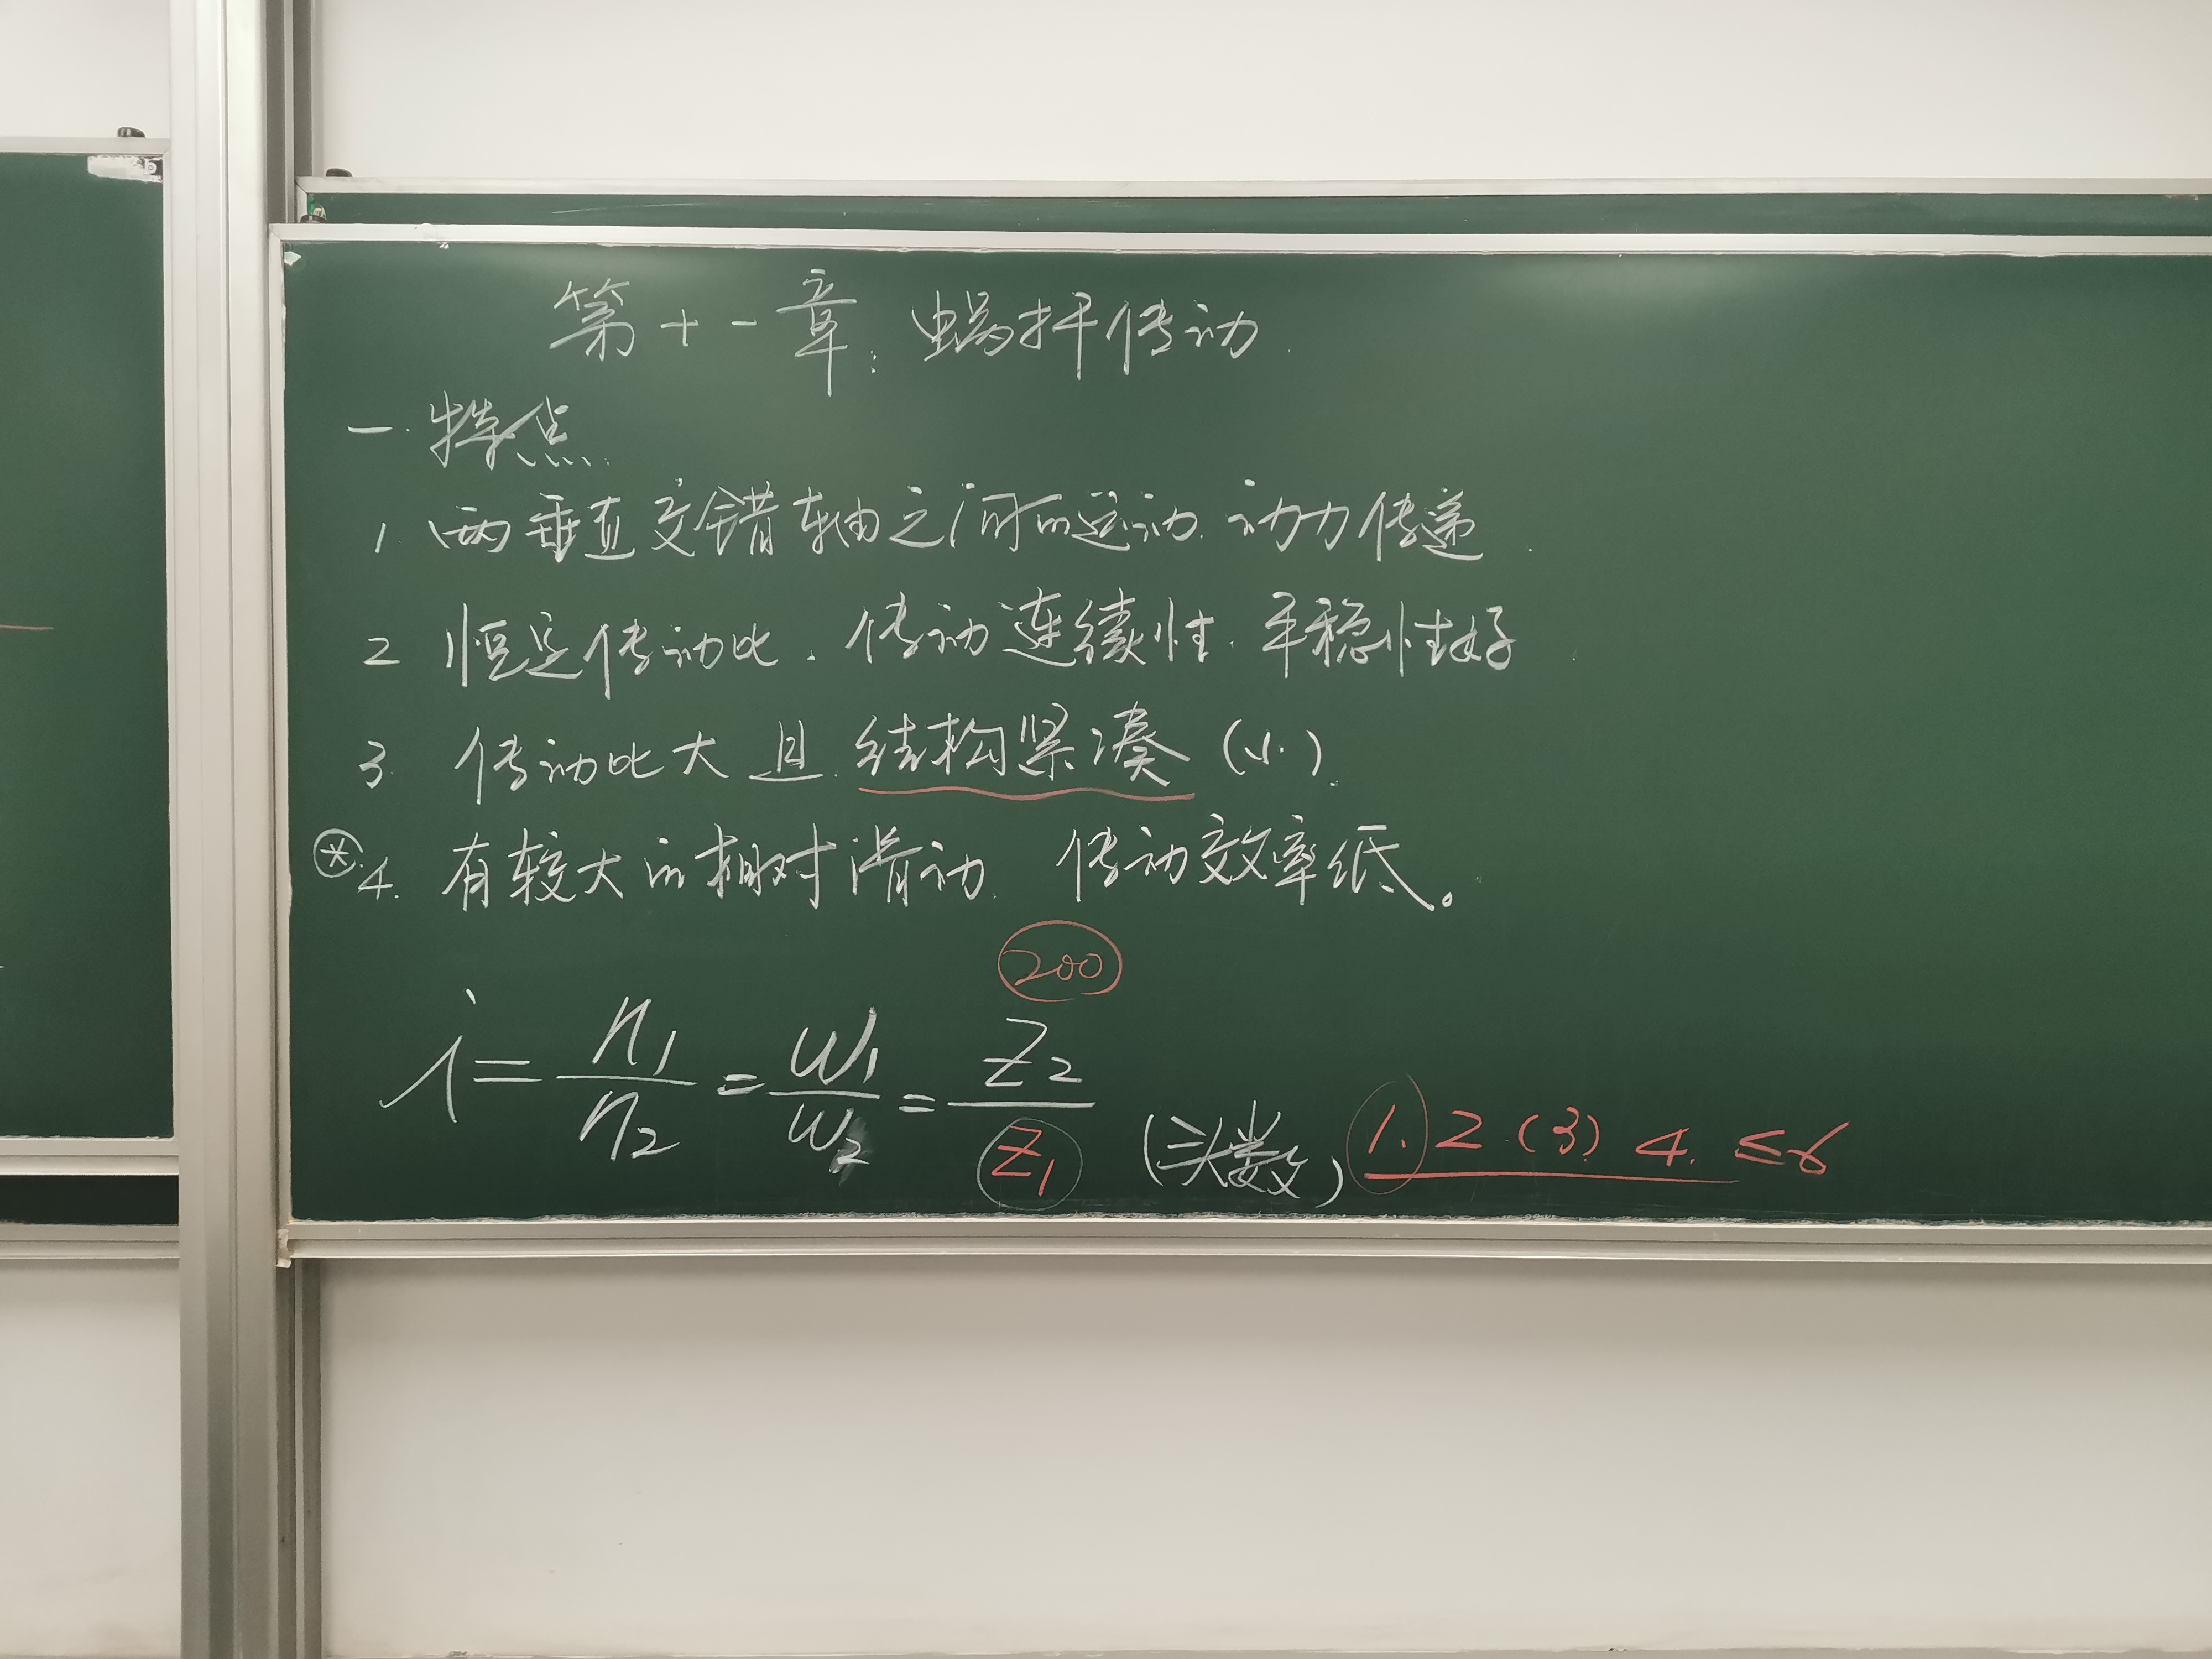 第十一章：蜗杆传动.
一. 特点
1. 两垂直交错轴之间的运动. 动力传递.
2 恒定传动比. 传动连续性. 平稳性好.
3. 传动比大且结构紧凑(小).
* 4. 有较大的相对滑动. 传动效率低。
200
i = n1/n2 = w1/w2 = Z2/Z1 (头数) 1. 2 (3) 4. ≤6